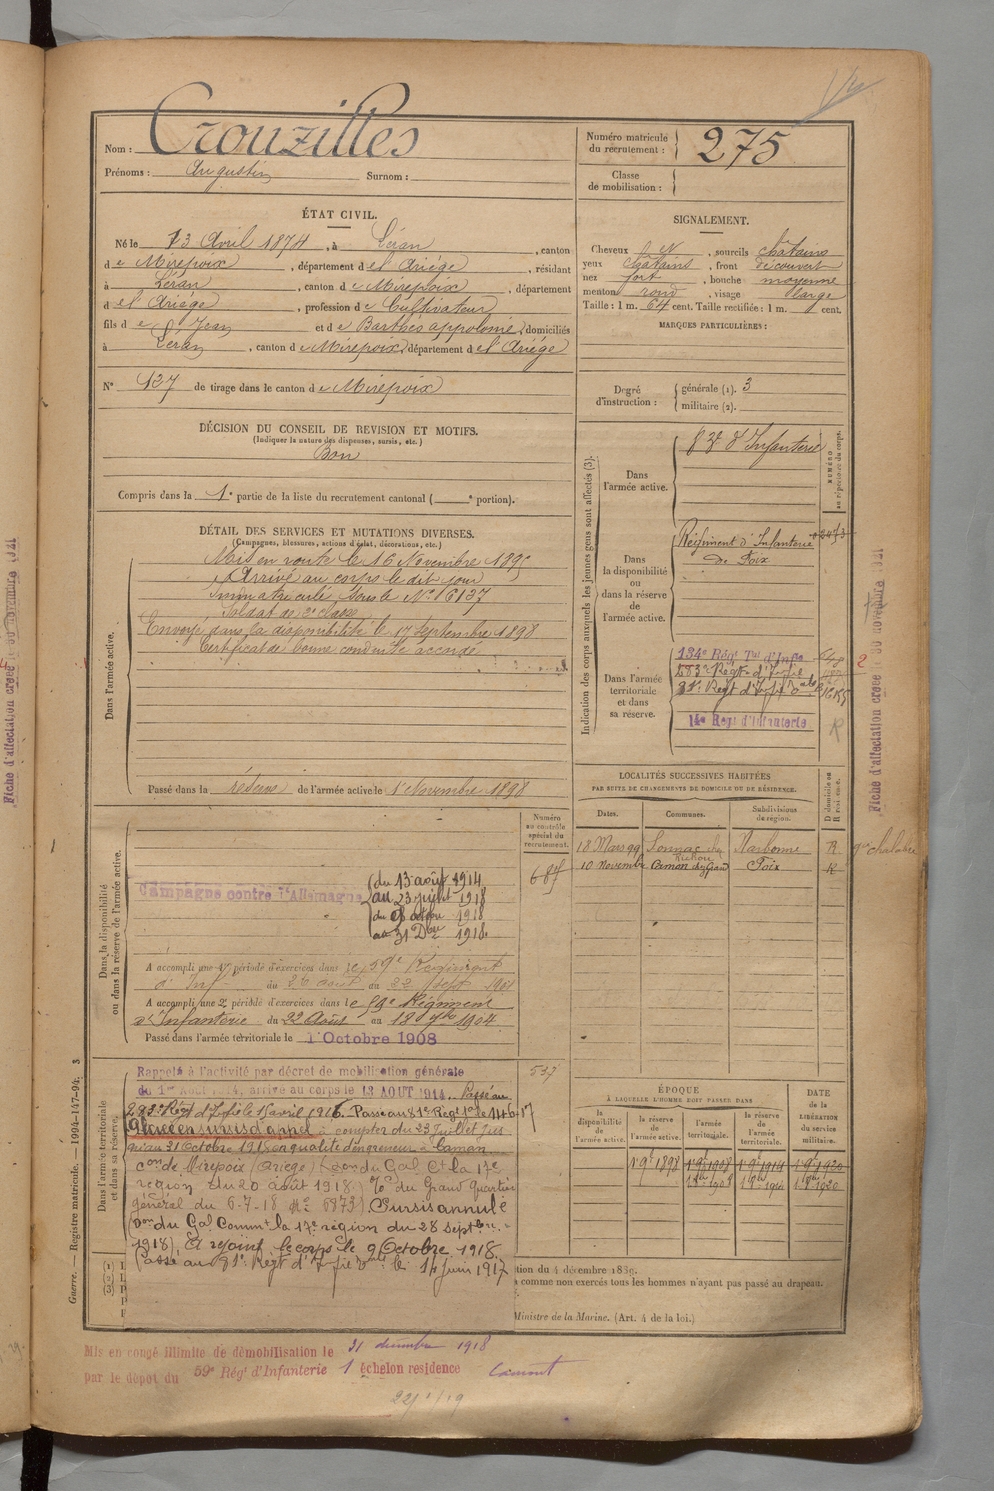 Nom : Crouzilles
Prénoms : Augustin Surnom :
Numéro matricule du recrutement : 275
Classe de mobilisation :
ÉTAT CIVIL.
Né le 13 Avril 1874, à Léran, canton
de Mirepoix, département de l'Ariège, résidant
à Léran, canton de Mirepoix, département
de l'Ariège, profession de Cultivateur
fils de Jean et de Barthes appolonie, domiciliés
à Léran, canton de Mirepoix, département de l'Ariège
N° 137 de tirage dans le canton de Mirepoix
DÉCISION DU CONSEIL DE REVISION ET MOTIFS.
(Indiquer la nature des dispenses, sursis, etc.)
Bon
Compris dans la 1e partie de la liste du recrutement cantonal ( e portion).
SIGNALEMENT.
Cheveux N, sourcils châtains
yeux châtains, front découvert
nez fort, bouche moyenne
menton rond, visage large
Taille : 1 m. 64 cent. Taille rectifiée : 1 m. cent.
MARQUES PARTICULIÈRES :
Degré d'instruction : générale (1). 3
militaire (2).
DÉTAIL DES SERVICES ET MUTATIONS DIVERSES.
(Campagnes, blessures, actions d'éclat, décorations, etc.)
Dans l'armée active.
Mis en route le 16 Novembre 1895
Arrivé au corps le dit jour
Immatriculé sous le N° 6137
Soldat de 2e classe
Envoyé dans la disponibilité le 17 Septembre 1898
Certificat de bonne conduite accordé
Passé dans la réserve de l'armée active le 1 Novembre 1898
Indication des corps auxquels les jeunes gens sont affectés (3).
NUMÉRO au répertoire du corps.
Dans l'armée active.
83e d'Infanterie
Dans la disponibilité ou dans la réserve de l'armée active.
Régiment d'Infanterie
de Foix
Dans l'armée territoriale et dans sa réserve.
134e Régt Tal d'Infie
283e Régt d'Infie
81e Régt d'Infie
14e Régt d'Infanterie
R
2
LOCALITÉS SUCCESSIVES HABITÉES
PAR SUITE DE CHANGEMENTS DE DOMICILE OU DE RÉSIDENCE.
Dates. Communes. Subdivisions de région. D domicile ou R résidence.
18 Mars 99 Sonnac Narbonne R
10 novembre Camon Foix R
Numéro au contrôle spécial du recrutement.
687
Dans la disponibilité ou dans la réserve de l'armée active.
Campagne contre l'Allemagne
du 13 août 1914
au 23 juillet 1918
du 9 octobre 1918
au 31 Dbre 1918
A accompli une 1e période d'exercices dans le 59e Régiment
d'Inf du 26 août au 22 sept 1901
A accompli une 2e période d'exercices dans le 59e Régiment
d'Infanterie du 22 Août au 18 7bre 1904
Passé dans l'armée territoriale le 1 Octobre 1908
537
Dans l'armée territoriale et dans sa réserve.
Rappelé à l'activité par décret de mobilisation générale
du 1er Août 1914, arrivé au corps le 13 AOUT 1914. Passé au
283e Régt d'Infie le 1 avril 1916. Passé au 81e Régt
Placé en sursis d'appel à compter du 23 Juillet jus
qu'au 31 Octobre 1918 en qualité d'engreneur à Camon
con de Mirepoix (Ariège) (Don du Gal Ct la 17e
région du 20 août 1918) du Grand quartier
général du 6-7-18 N° 6873) Sursis annulé
(Don du Gal Commt la 17e région du 28 Septbre
1918). A rejoint le corps le 9 Octobre 1918.
Passé au 81e Régt d'Infie le 14 Juin 1917
ÉPOQUE
À LAQUELLE L'HOMME DOIT PASSER DANS
la disponibilité de l'armée active. la réserve de l'armée active. l'armée territoriale. la réserve de l'armée territoriale. DATE de la LIBÉRATION du service militaire.
1 9e 1898 1 9e 1908 1 9e 1914 1 9e 1920
tion du 4 décembre 1889.
comme non exercés tous les hommes n'ayant pas passé au drapeau.
Ministre de la Marine. (Art. 4 de la loi.)
Guerre. — Registre matricule. — 1994-147-94. 3
Mis en congé illimité de démobilisation le 31 décembre 1918
par le dépôt du 59e Régt d'Infanterie 1 échelon résidence
Fiche d'affectation créée le 30 novembre 1921
Fiche d'affectation créée le 30 novembre 1921